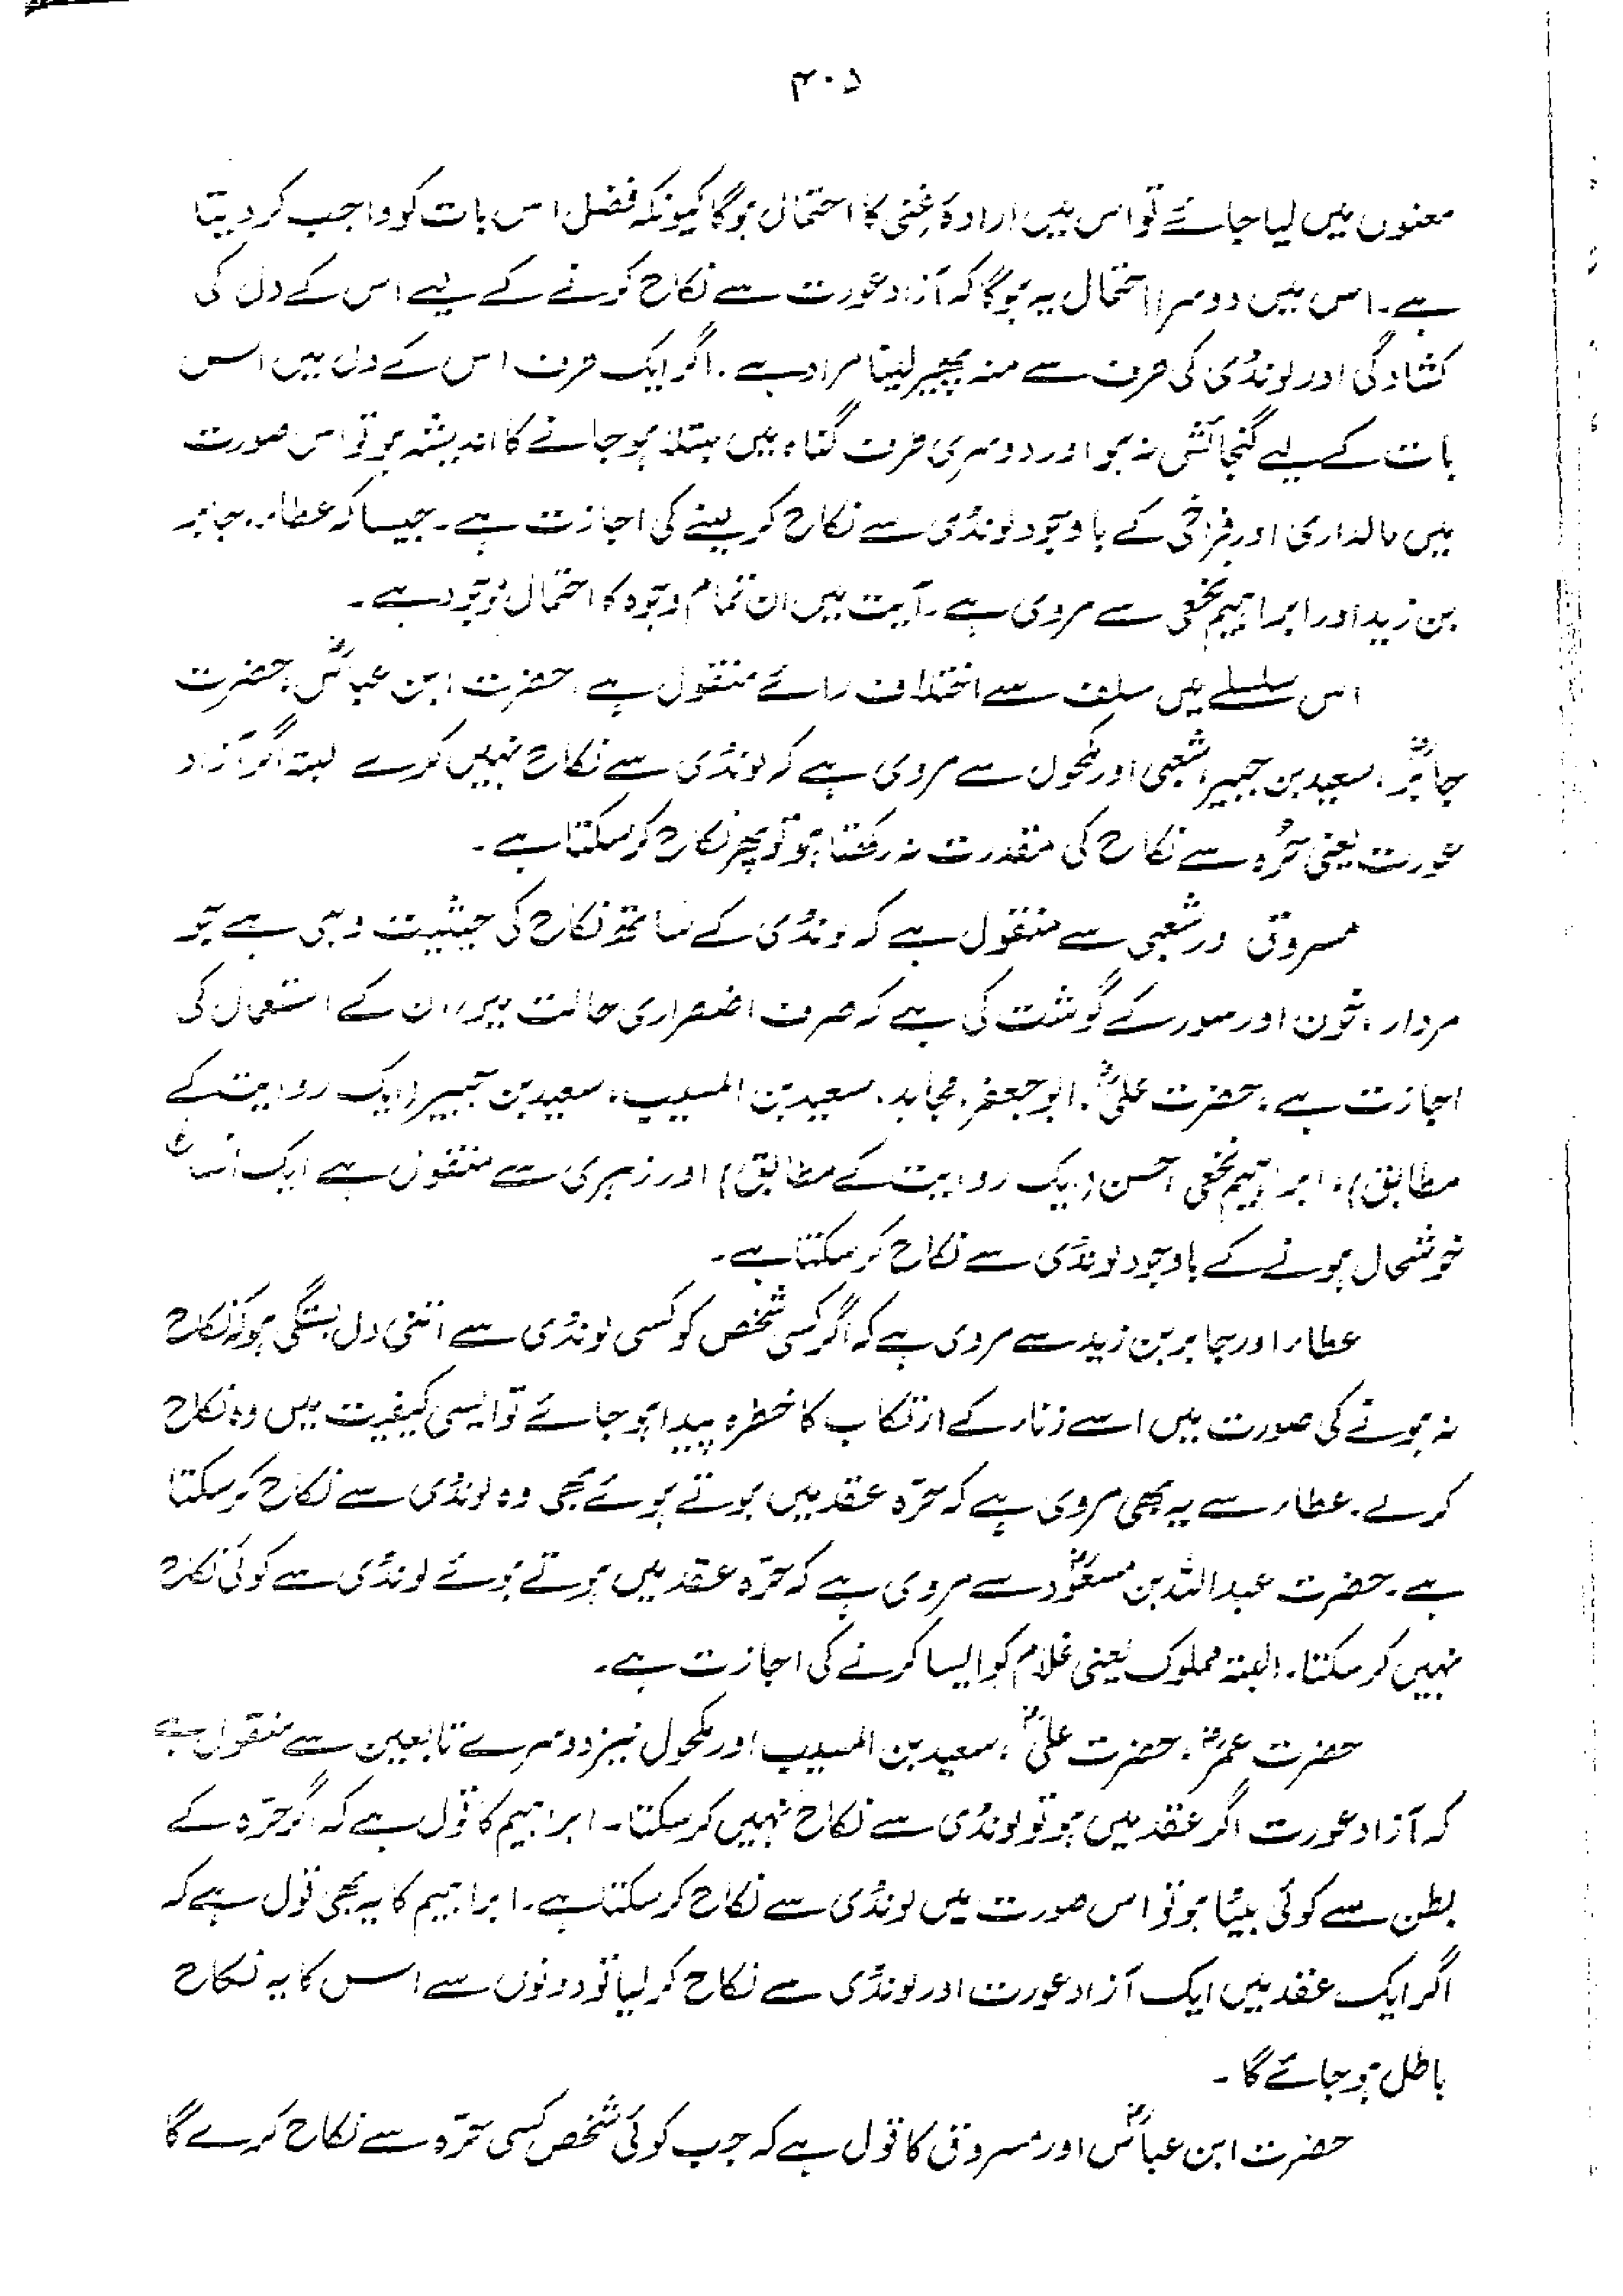 ۳۰۵
معنوں میں لیا جائے تو اس میں ارادۂ غنی کا احتمال ہوگا کیونکہ فضل اس بات کو واجب کر دیتا
ہے۔ اس میں دوسرا احتمال یہ ہوگا کہ آزاد عورت سے نکاح کرنے کے لیے اس کے دل کی
کشادگی اور لونڈی کی طرف سے منہ پھیر لینا مراد ہے۔ اگر ایک طرف اس کے دل میں اس
بات کے لیے گنجائش نہ ہو اور دوسری طرف گناہ میں مبتلا ہو جانے کا اندیشہ ہو تو اس صورت
میں مالداری اور فراخی کے باوجود لونڈی سے نکاح کر لینے کی اجازت ہے۔ جیسا کہ عطاء، جابر
بن زید اور ابراہیم نخعی سے مروی ہے۔ آیت میں ان تمام وجوہ کا احتمال موجود ہے۔
اس سلسلے میں سلف سے اختلاف رائے منقول ہے، حضرت ابن عباسؓ، حضرت
جابرؓ، سعید بن جبیر، شعبی اور مکحول سے مروی ہے کہ لونڈی سے نکاح نہیں کرے البتہ اگر آزاد
عورت یعنی حُرہ سے نکاح کی مقدرت نہ رکھتا ہو تو پھر نکاح کر سکتا ہے۔
مسروق اور شعبی سے منقول ہے کہ لونڈی کے ساتھ نکاح کی حیثیت وہی ہے جو
مردار، خون اور سور کے گوشت کی ہے کہ صرف اضطراری حالت میں ان کے استعمال کی
اجازت ہے۔ حضرت علیؓ، ابو جعفر، مجاہد، سعید بن المسیب، سعید بن جبیر (ایک روایت کے
مطابق)، ابراہیم نخعی، حسن (ایک روایت کے مطابق) اور زہری سے منقول ہے ایک انسان
خوشحال ہونے کے باوجود لونڈی سے نکاح کر سکتا ہے۔
عطاء اور جابر بن زید سے مروی ہے کہ اگر کسی شخص کو کسی لونڈی سے اتنی دل بستگی ہو کہ نکاح
نہ ہونے کی صورت میں اسے زنا کے ارتکاب کا خطرہ پیدا ہو جائے تو ایسی کیفیت میں وہ نکاح
کرلے۔ عطاء سے یہ بھی مروی ہے کہ حرّہ عقد میں ہوتے ہوئے بھی وہ لونڈی سے نکاح کر سکتا
ہے۔ حضرت عبداللہ بن مسعودؓ سے مروی ہے کہ حرّہ عقد میں ہوتے ہوئے لونڈی سے کوئی نکاح
نہیں کر سکتا۔ البتہ مملوک یعنی غلام کو ایسا کرنے کی اجازت ہے۔
حضرت عمرؓ، حضرت علیؓ، سعید بن المسیب اور مکحول نیز دوسرے تابعین سے منقول ہے
کہ آزاد عورت اگر عقد میں ہو تو لونڈی سے نکاح نہیں کر سکتا۔ ابراہیم کا قول ہے کہ اگر حرّہ کے
بطن سے کوئی بیٹا ہو تو اس صورت میں لونڈی سے نکاح کر سکتا ہے۔ ابراہیم کا یہ بھی قول ہے کہ
اگر ایک عقد میں ایک آزاد عورت اور لونڈی سے نکاح کر لیا تو دونوں سے اس کا یہ نکاح
باطل ہو جائے گا۔
حضرت ابن عباسؓ اور مسروق کا قول ہے کہ جب کوئی شخص کسی حرّہ سے نکاح کرے گا